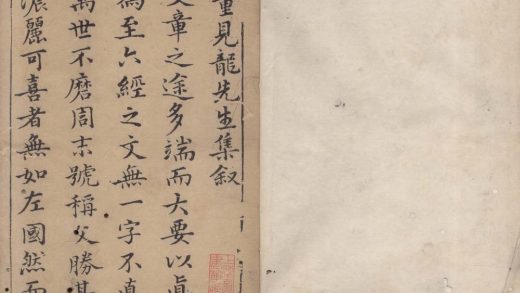 重見龍先生集叙
文章之途多端而大要以真
為至六經之文無一字不真
萬世不磨周末號稱文勝其
濃麗可喜者無如左國然而